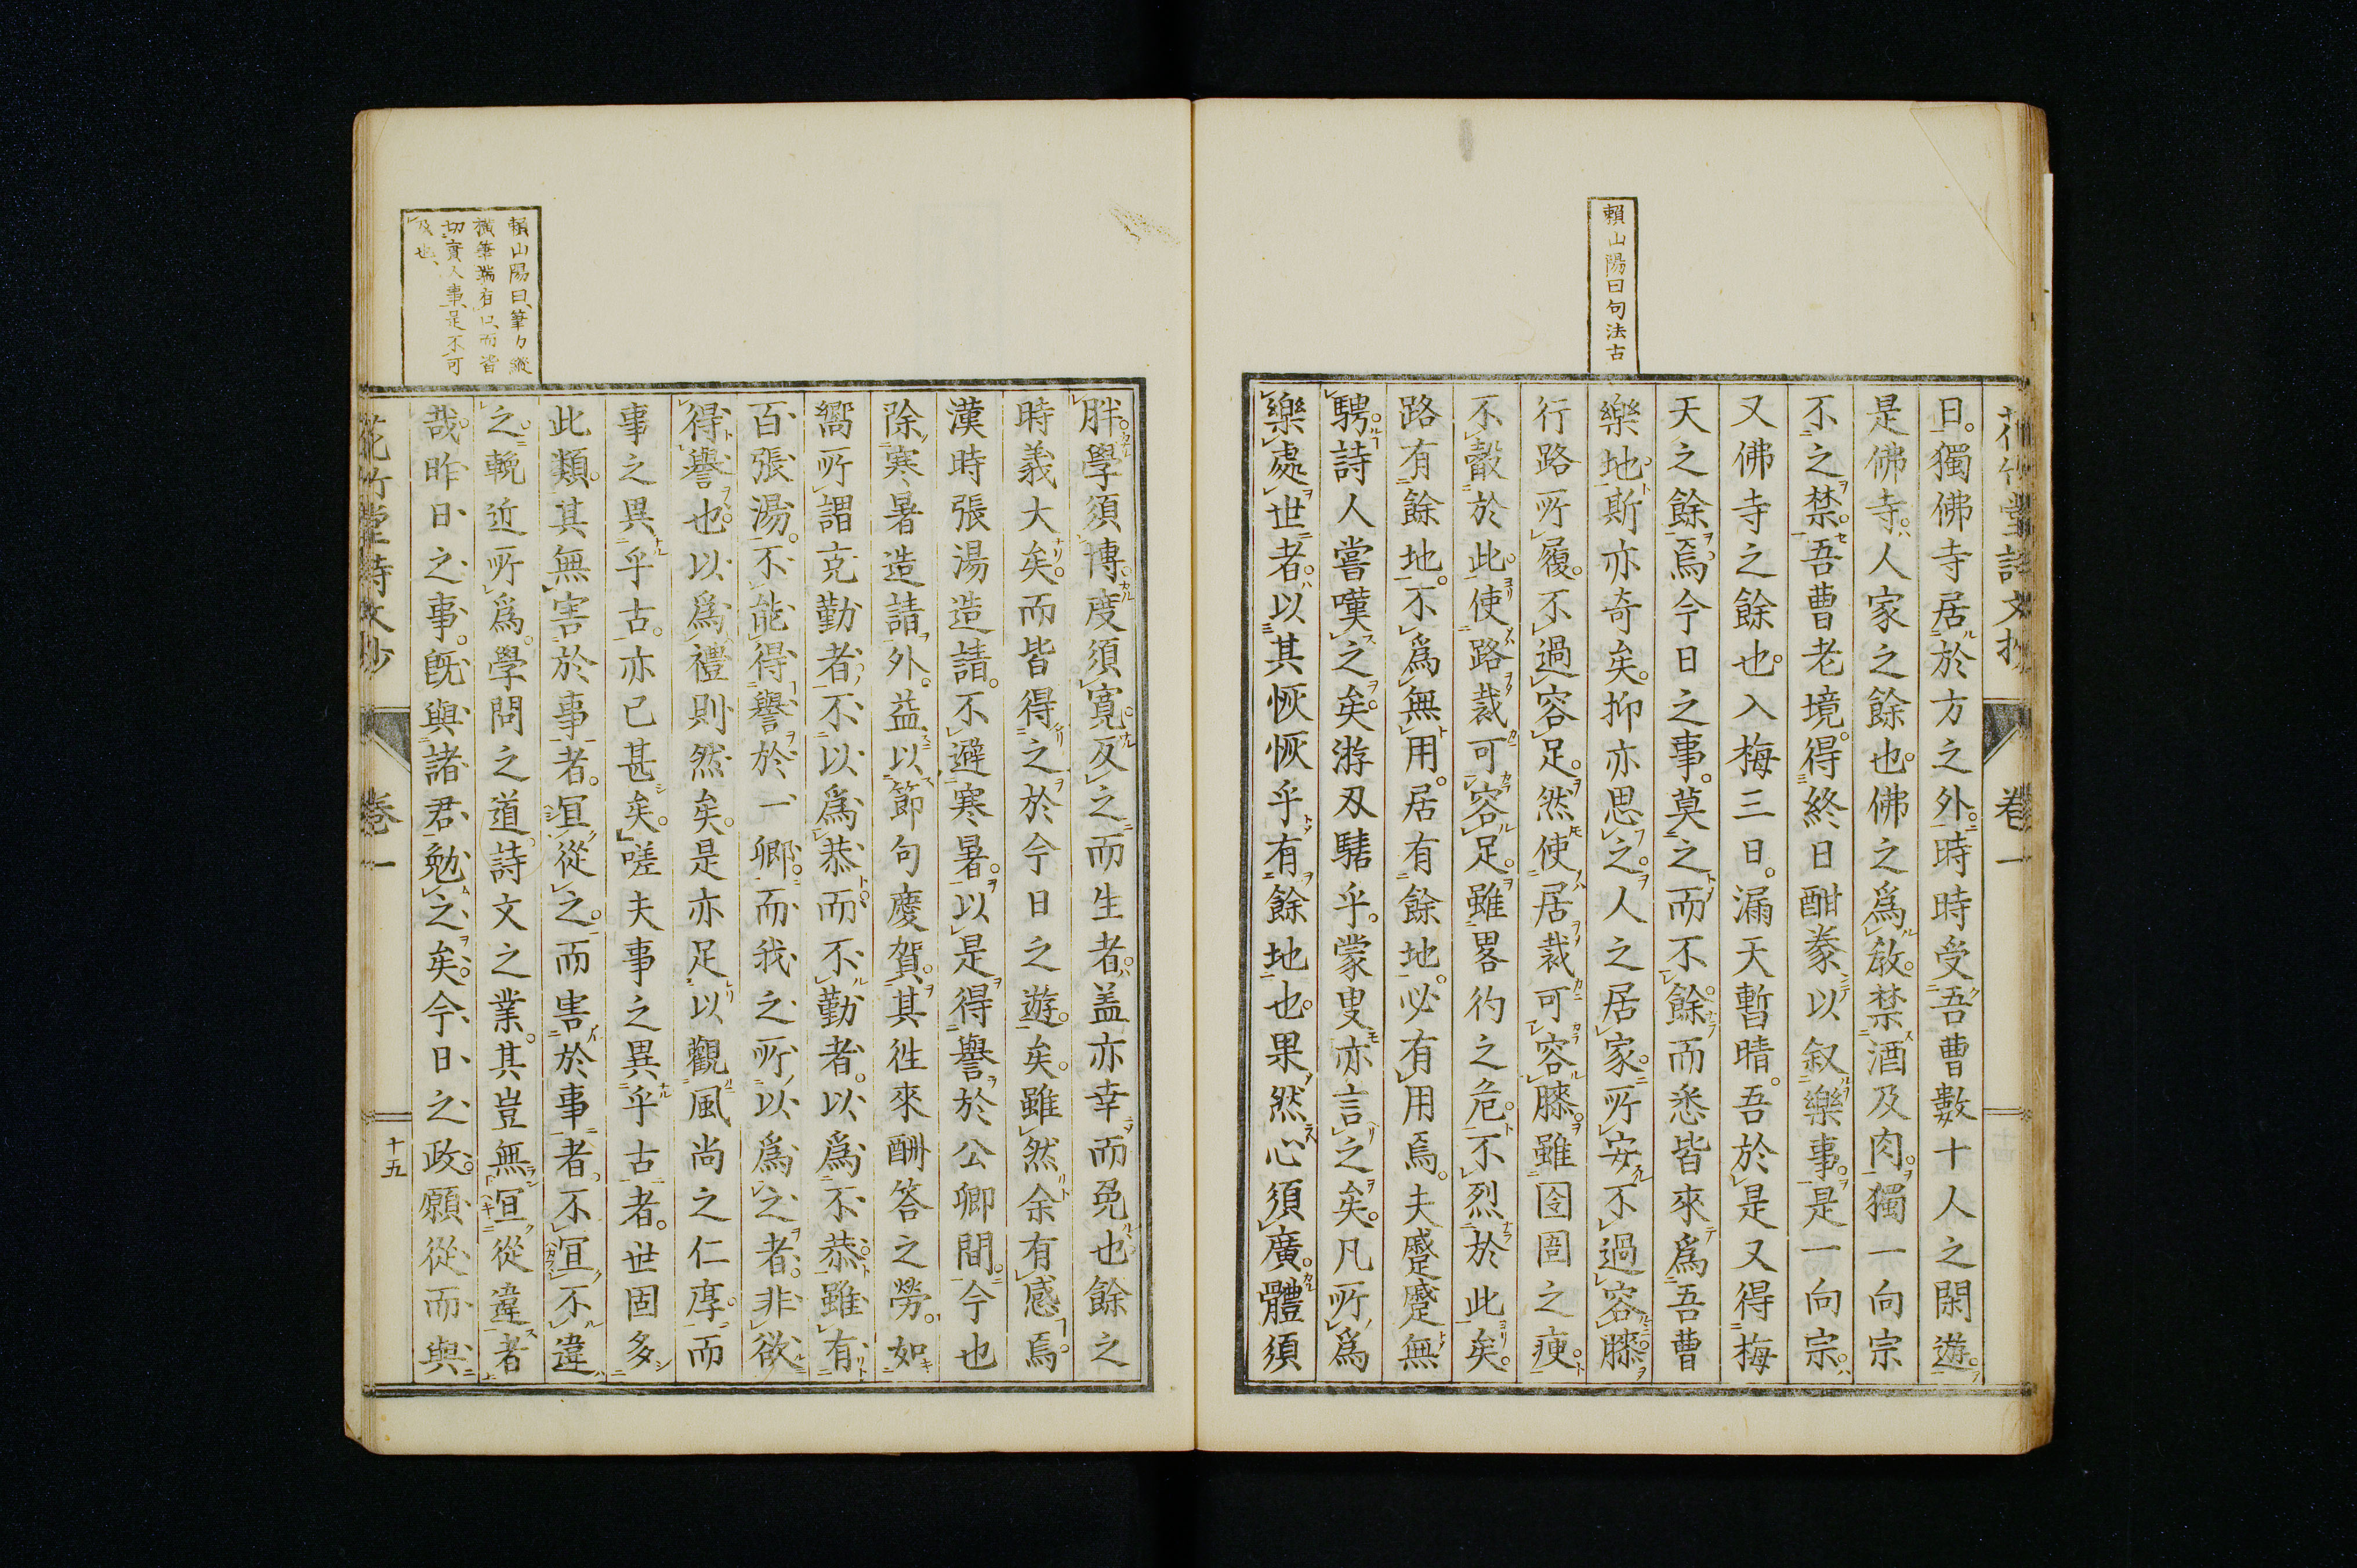 花竹堂詩文抄 卷一
賴山陽曰句法古
日獨佛寺居於方之外時時受吾曹數十人之閑遊
是佛寺人家之餘也佛之爲敎禁酒及肉獨一向宗
不之禁吾曹老境得終日酣豢以叙樂事是一向宗
又佛寺之餘也入梅三日漏天暫晴吾於是又得梅
天之餘焉今日之事莫之而不餘而悉皆來爲吾曹
樂地斯亦奇矣抑亦思之人之居家所安不過容膝
行路所履不過容足然使居裁可容膝雖囹圄之㾣
不㲄於此使路裁可容足雖畧彴之危不烈於此矣
路有餘地不爲無用居有餘地必有用焉夫蹙蹙無
騁詩人嘗嘆之矣游刃騞乎蒙叟亦言之矣凡所爲
樂處世者以其恢恢乎有餘地也果然心須廣體須
賴山陽曰筆力縱
橫筆端有口而皆
切實人事是不可
及也
胖學須博度須寬反之而生者盖亦幸而免也餘之
時義大矣而皆得之於今日之遊矣雖然余有感焉
漢時張湯造請不避寒暑以是得譽於公卿間今也
除寒暑造請外益以節句慶賀其徃來酬答之勞如
嚮所謂克勤者不以爲恭而不勤者以爲不恭雖有
百張湯不能得譽於一卿而我之所以爲之者非欲
得譽也以爲禮則然矣是亦足以觀風尚之仁厚而
事之異乎古亦已甚矣嗟夫事之異乎古者世固多
此類其無害於事者宜從之而害於事者不宜不違
之輓近所爲學問之道詩文之業其豈無宜從違者
哉昨日之事旣與諸君勉之矣今日之政願從而與
花竹堂詩文抄 卷一 十五